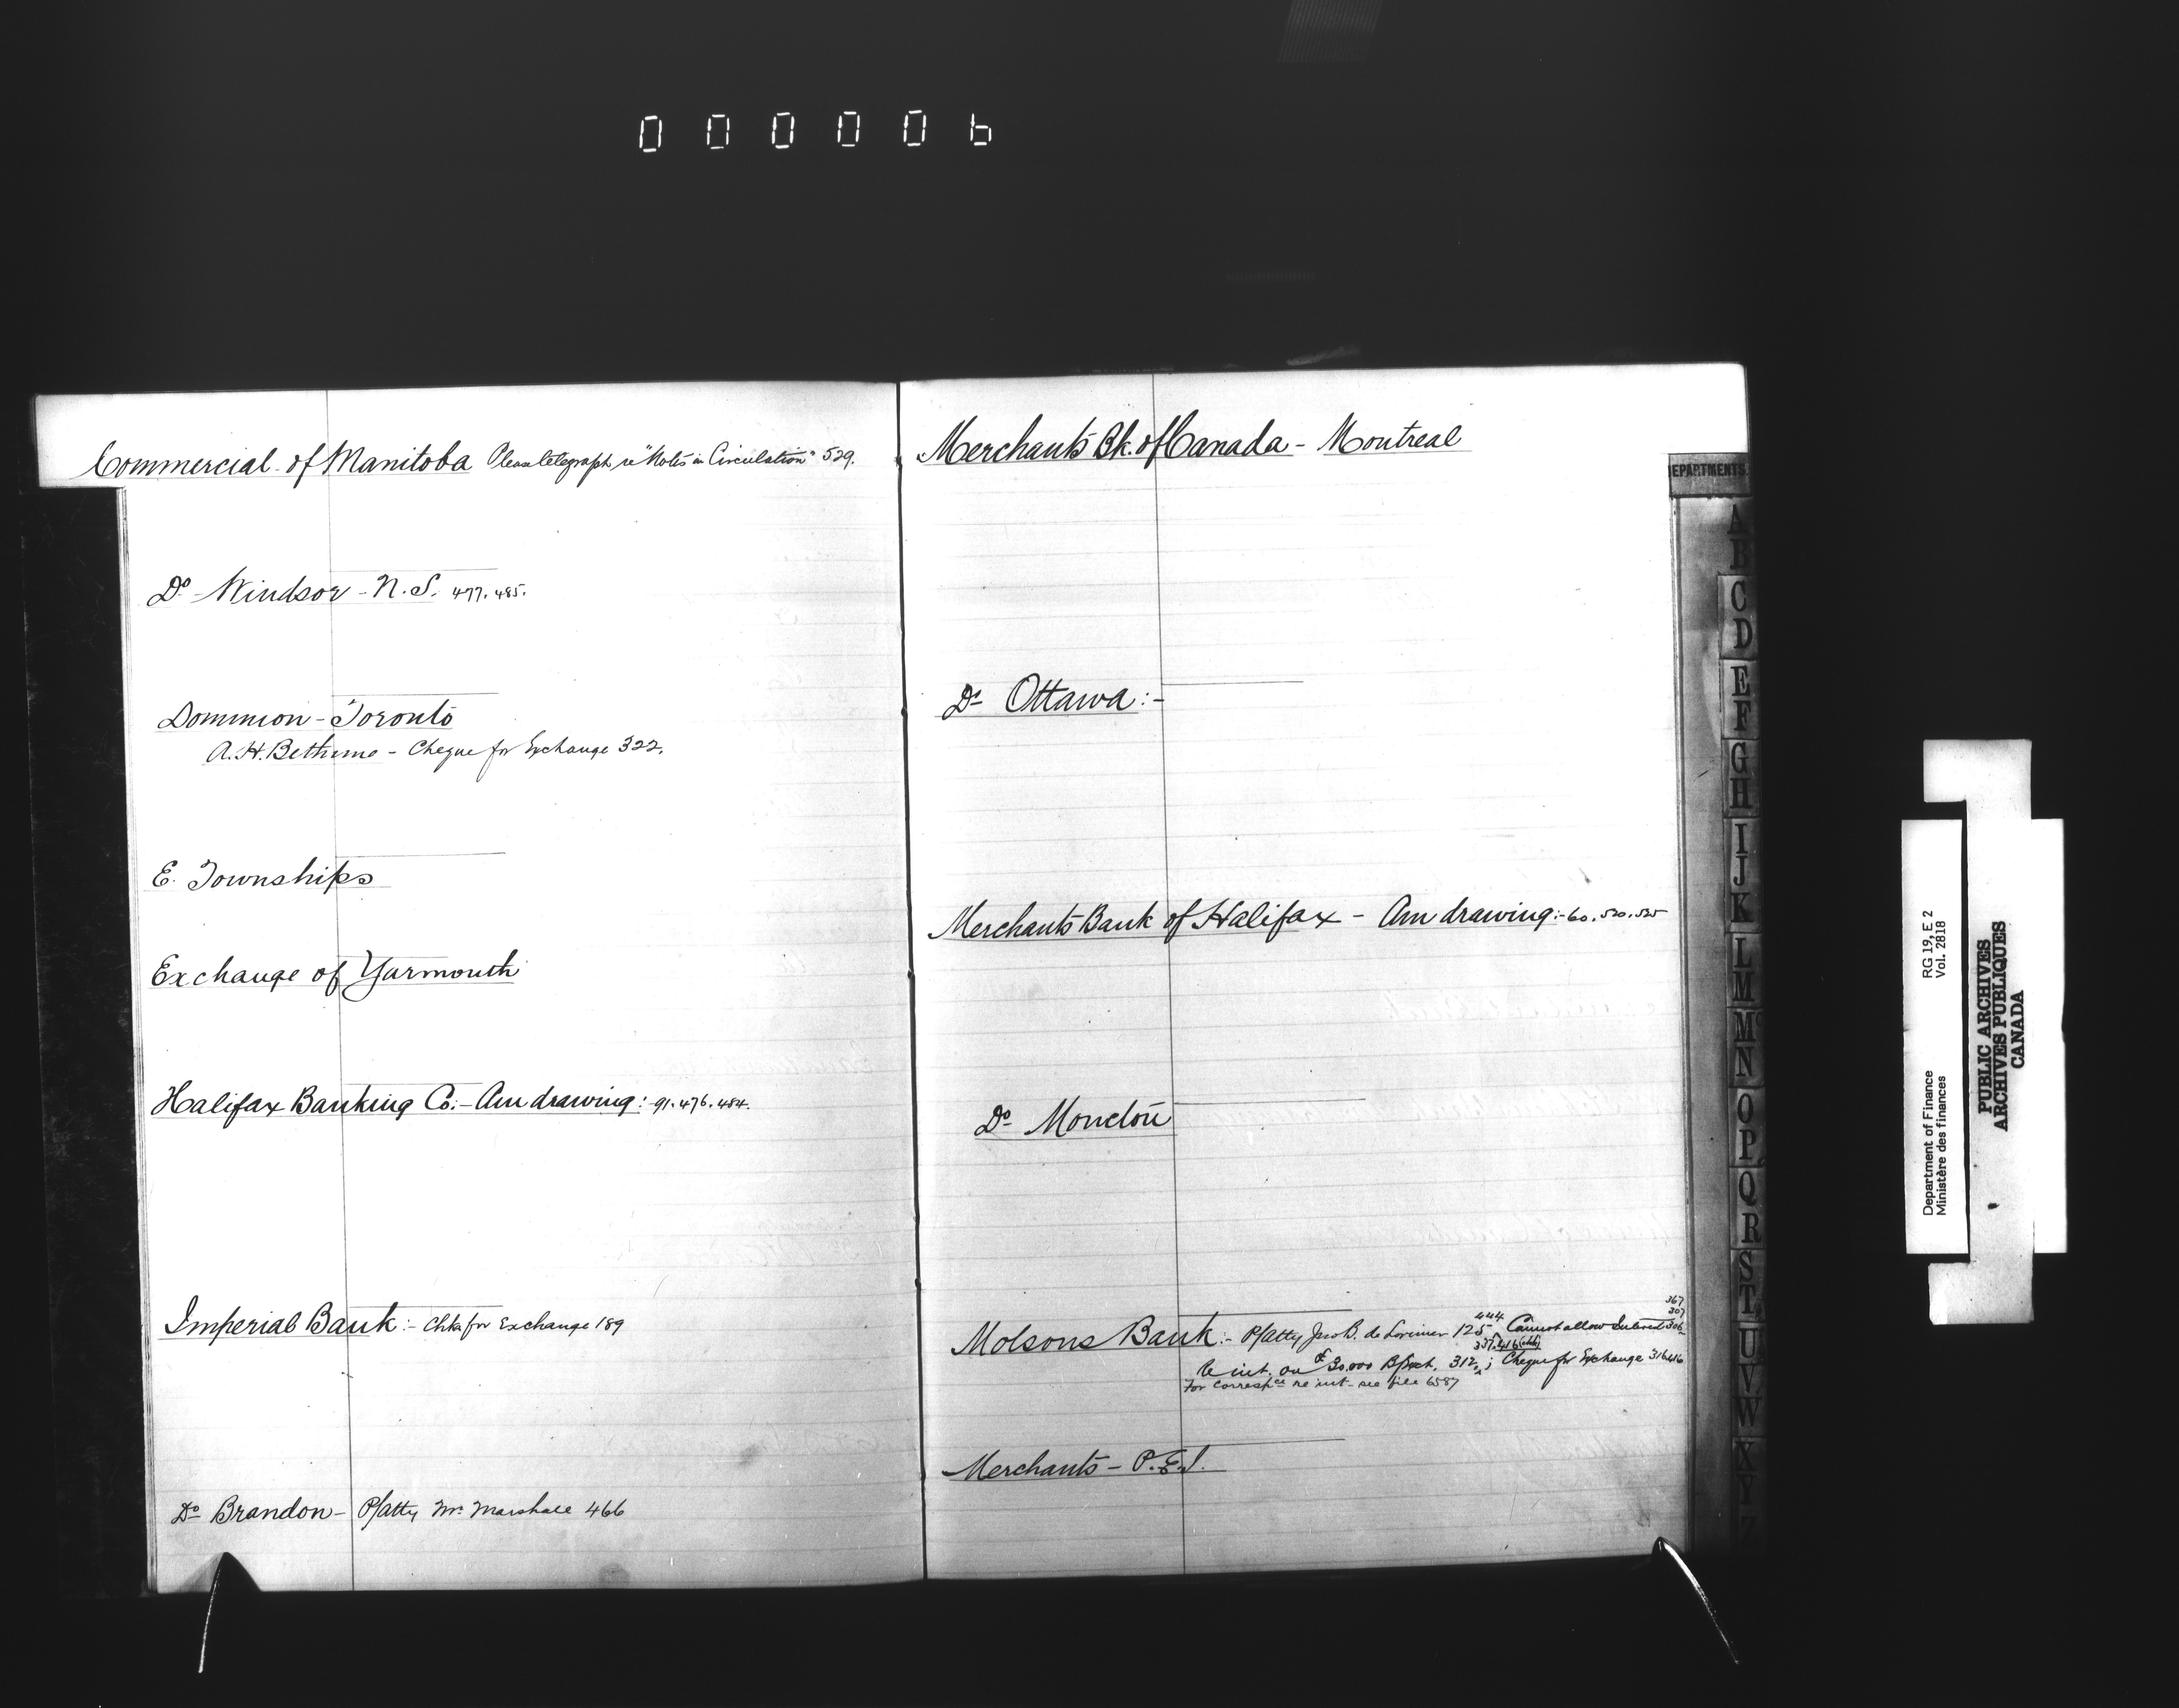 000006
Commercial of Manitoba Please telegraph re "Notes in Circulation" 529.
Do Windsor - N.S. 477. 485.
Dominion - Toronto
A. H. Bethune - Cheque for Exchange 322.
E. Townships
Exchange of Yarmouth
Halifax Banking Co:- Am drawing:- 91. 476. 484.
Imperial Bank:- Chks for Exchange 189
Do Brandon - P/atty Mr. Marshall 466
Merchants Bk. of Canada - Montreal
Do Ottawa:-
Merchants Bank of Halifax - Am drawing:- 60. 520. 525
Do Moncton
367
307
444
Molsons Bank:- P/atty Jno B. de Lorimier 125, Cannot allow Interest 306
337. 416
Re int. on 30.000 B/Exch. 312, ; Cheque for Exchange 316.416
For Correspce re int - see file 6587
Merchants - P.E.I.
EPARTMENTS
A
B
C
D
E
F
G
H
I
J
K
L
M
Mc
N
O
P
Q
R
S
T
U
V
W
X
Y
Z
Department of Finance RG 19, E 2
Ministère des finances Vol. 2818
PUBLIC ARCHIVES
ARCHIVES PUBLIQUES
CANADA